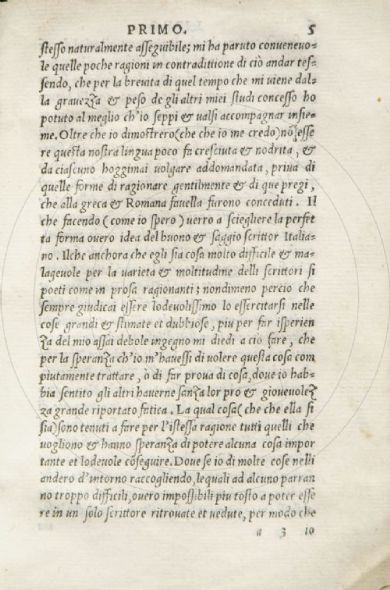 PRIMO. 5
stesso naturalmente asseguibile; mi ha paruto conueneuo=
le quelle poche ragioni in contradittione di ciò andar tes=
sendo, che per la breuita di quel tempo che mi viene dal=
la grauezza & peso de gli altri miei studi concesso ho
potuto al meglio ch'io seppi & valsi accompagnar insie=
me. Oltre che io dimostrero (che che io me credo) nõ esse
re questa nostra lingua poco fa cresciuta & nodrita, &
da ciascuno hoggimai volgare addomandata, priua di
quelle forme di ragionare gentilmente & di que pregi,
che alla greca & Romana fauella furono conceduti. Il
che facendo (come io spero) verro a sciegliere la perfet
ta forma ouero idea del buono & saggio scrittor Italia=
no. Ilche anchora che egli sia cosa molto difficile & ma=
lageuole per la varieta & moltitudine delli scrittori si
poeti come in prosa ragionanti; nondimeno percio che
sempre giudicai essere lodeuolissimo lo essercitarsi nelle
cose grandi & stimate et dubbiose, piu per far isperien
za del mio assai debole ingegno mi diedi a ciò fare, che
per la speranza ch'io m'hauessi di volere questa cosa com
piutamente trattare, ò di far proua di cosa, doue io hab=
bia sentito gli altri hauerne sanza lor pro & gioueuolez
za grande riportato fatica. La qual cosa (che che ella si
sia) sono tenuti a fare per l'istessa ragione tutti quelli che
vogliono & hanno speranza di potere alcuna cosa impor
tante et lodeuole cõseguire. Doue se io di molte cose nelli
andero d'intorno raccogliendo, lequali ad alcuno parran
no troppo difficili, ouero impossibili piu tosto a poter esse
re in un solo scrittore ritrouate et vedute, per modo che
a 3 io